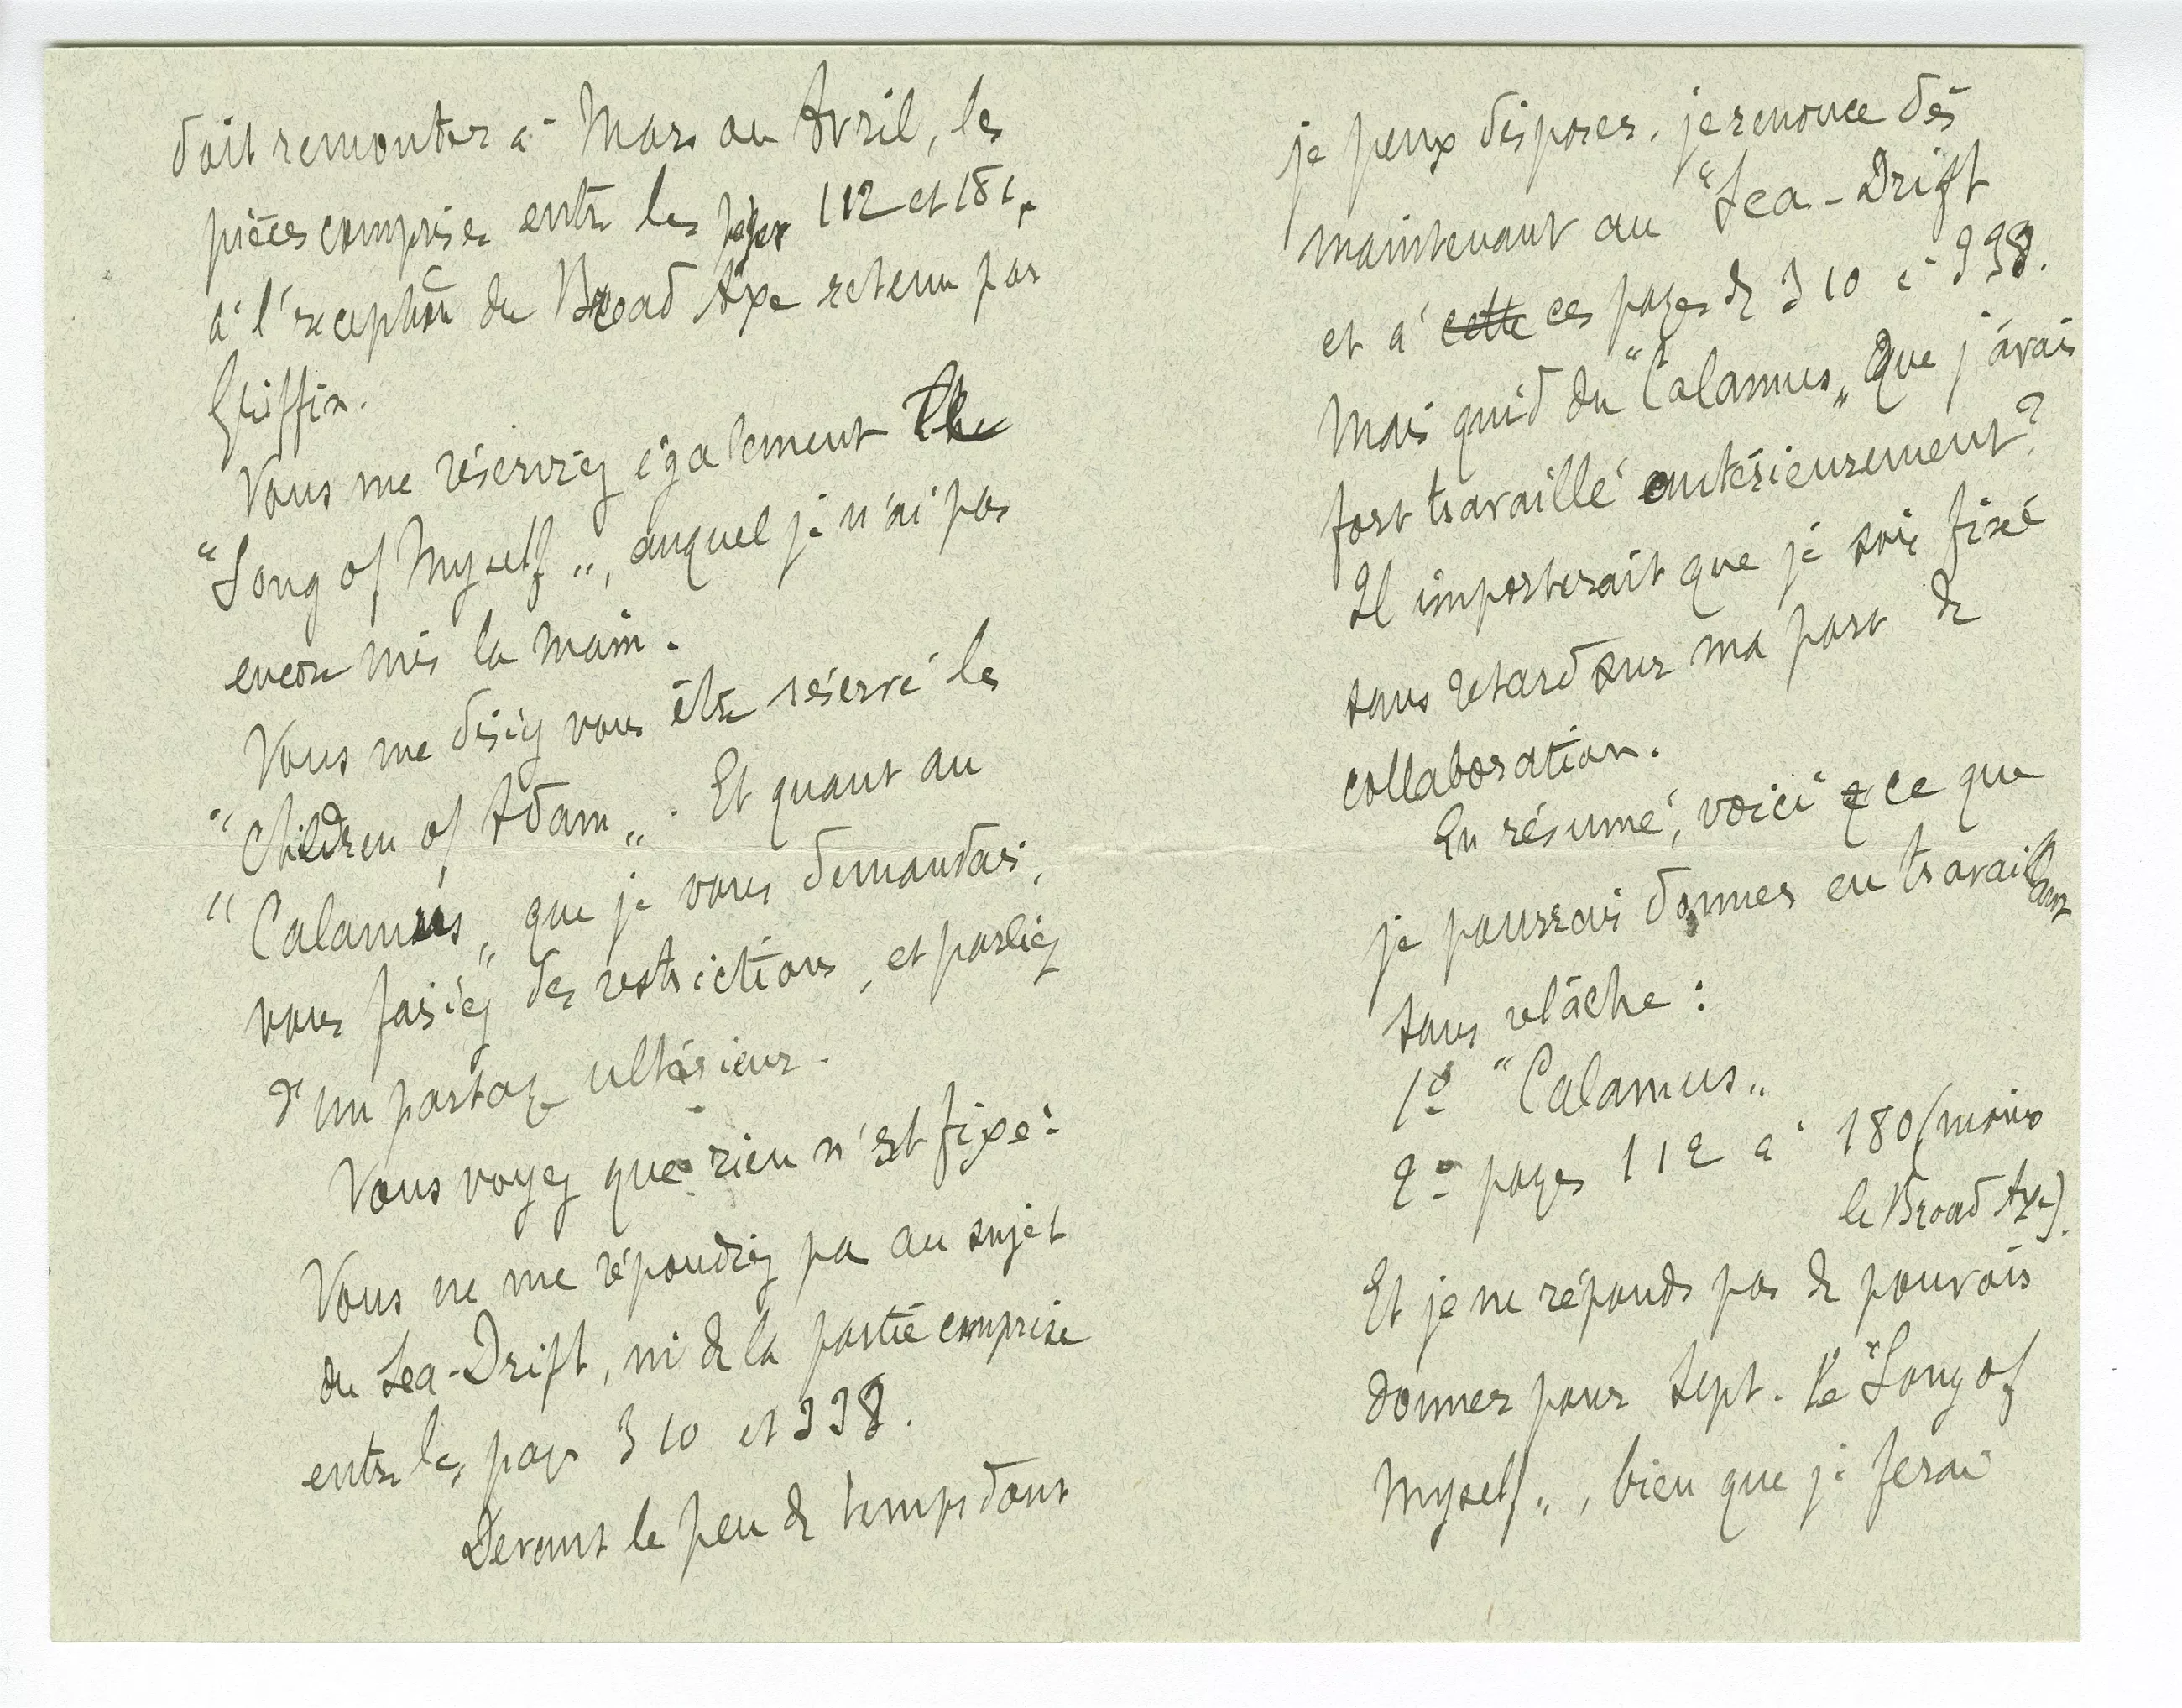 doit remonter à Mars ou Avril, les
pièces comprises entre les pages 112 et 181,
à l'exception du Broad Axe retenu par
Griffin.
Vous me réserviez également the
"Song of Myself", auquel je n'ai pas
encore mis la main.
Vous me disiez vous être réservé les
"Children of Adam". Et quant au
"Calamus" que je vous demandais,
vous faisiez des restrictions, et parliez
d'un partage ultérieur.
Vous voyez que rien n'est fixé:
Vous ne me répondiez pas au sujet
du Sea-Drift, ni de la partie comprise
entre les pages 310 et 338.
Devant le peu de temps dont
je peux disposer, je renonce dès
maintenant au "Sea-Drift
et à cette ces pages de 310 à 338.
Mais quid du "Calamus" que j'avais
fort travaillé antérieurement?
Il importerait que je sois fixé
sans retard sur ma part de
collaboration.
En résumé, voici ce que
je pourrais donner en travaillant
sans relâche:
1º "Calamus"
2º pages 112 à 180 (moins
le Broad Axe).
Et je ne réponds pas de pouvoir
donner pour Sept. le "Song of
Myself", bien que je ferai